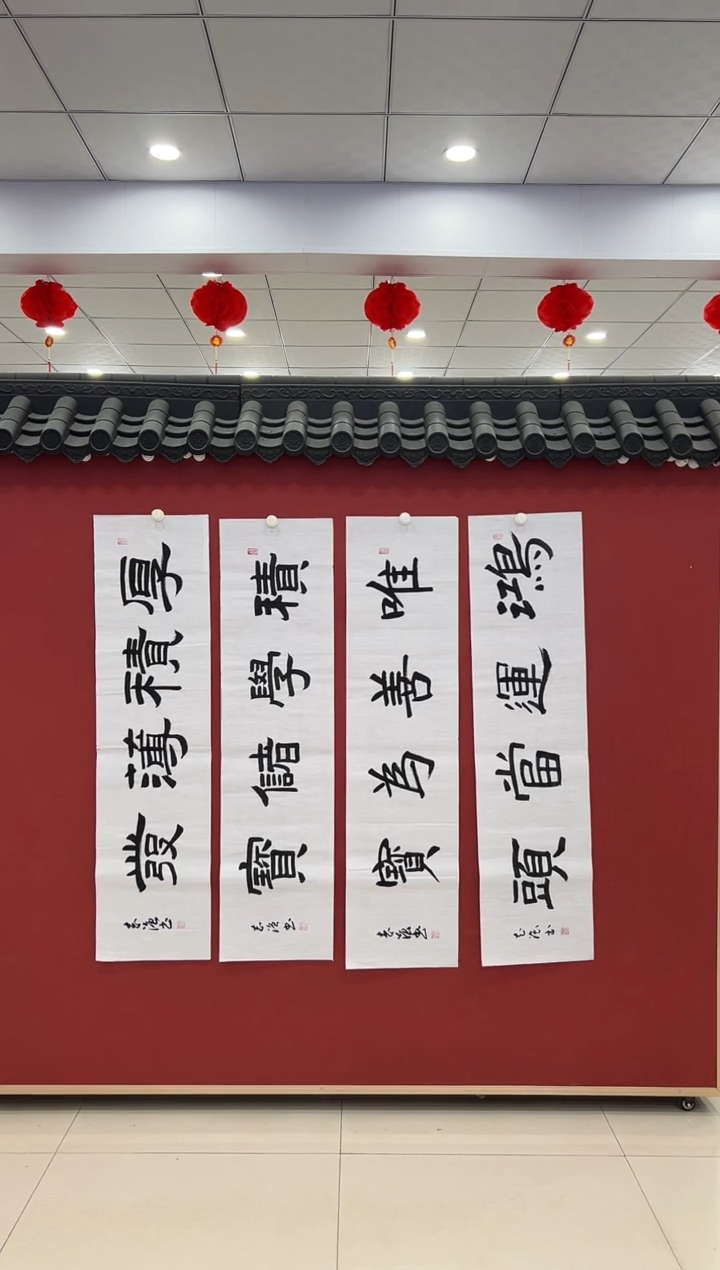 鴻運當頭
唯善為寶
積學儲寶
厚積薄發